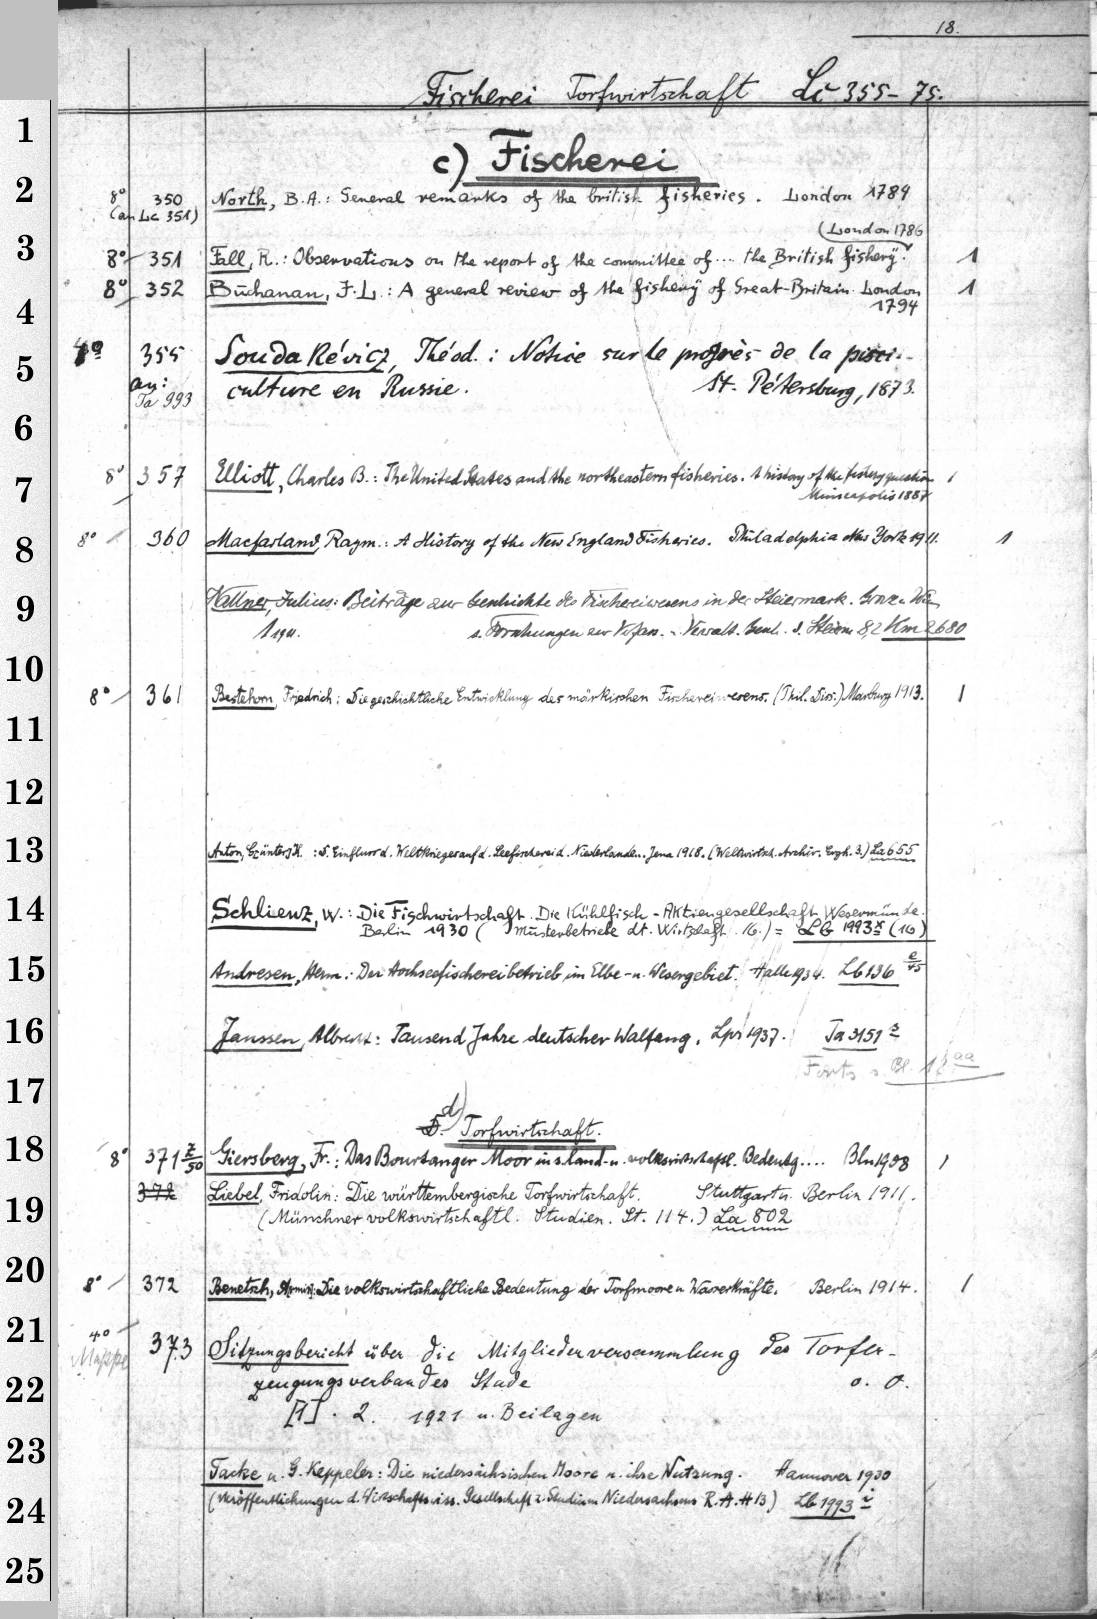 18.
Fischerei Torfwirtschaft Lc 355-75.
1
c) Fischerei
2
8° 350 North, B.A.: General remarks of the british fisheries. London 1789
(an Lc 351)
(London 1786
3
8° 351 Fall, R.: Observations on the report of the committee of.... the British fishery. 1
8° 352 Buchanan, F.L.: A general review of the fishery of Great-Britain. London 1
4
1794
4° 355 Soudakévicz, Théod.: Notice sur le progrès de la pisci-
5
an: culture en Russie. St. Pétersburg, 1873.
Ta 993
6
8° 357 Elliott, Charles B.: The United States and the northeastern fisheries. A history of the fishery question 1
7
Minneapolis 1887
8
8° 360 Macfarland, Raym.: A History of the New England Fisheries. Philadelphia New York 1911. 1
9
Wallner, Julius: Beiträge zur Geschichte des Fischereiwesens in der Steiermark. Graz u. Wien
1911. s. Forschungen zur Verfass.- Verwalt. Gesch. d. Steierm. 8,2 Hm 2680
10
8° 361 Bestehorn, Friedrich: Die geschichtliche Entwicklung des märkischen Fischereiwesens. (Phil. Diss.) Marburg 1913. 1
11
12
13
Anton, Günter K.: D. Einfluss d. Weltkrieges auf d. Seefischerei d. Niederlande. Jena 1918. (Weltwirtsch. Archiv. Ergh. 3.) La 655
14
Schlienz, W.: Die Fischwirtschaft. Die Kühlfisch-Aktiengesellschaft Wesermünde.
Berlin 1930 (Musterbetriebe dt. Wirtschaft. 16.) = Lb 1993 x (16)
15
Andresen, Herm.: Der Hochseefischereibetrieb im Elbe- u. Wesergebiet. Halle 1934. Lb 136 e/45
16
Janssen, Albrecht: Tausend Jahre deutscher Walfang. Lpz 1937. Ta 3151
Forts s. Bl. 18 aa
17
d) Torfwirtschaft.
18
8° 371 z/50 Giersberg, Fr.: Das Bourtanger Moor in s. land- u. volkswirtschaftl. Bedeutg.... Bln 1908 1
372 Liebel, Fridolin: Die württembergische Torfwirtschaft. Stuttgart u. Berlin 1911.
19
(Münchner volkswirtschaftl. Studien. St. 114.) La 802
20
8° 372 Benetsch, Armin: Die volkswirtschaftliche Bedeutung der Torfmoore u Wasserkräfte. Berlin 1914. 1
21
4° 373 Sitzungsbericht über die Mitgliederversammlung des Torfer-
Mappe
22
zeugungsverbandes Stade o. O.
[1]. 2. 1921 u. Beilagen
23
Tacke u. G. Keppeler: Die niedersächsischen Moore u. ihre Nutzung. Hannover 1930
24
(Veröffentlichungen d. Wirtschaftswiss. Gesellschaft z. Studium Niedersachsens R. A. H 13) Lb 1993
25